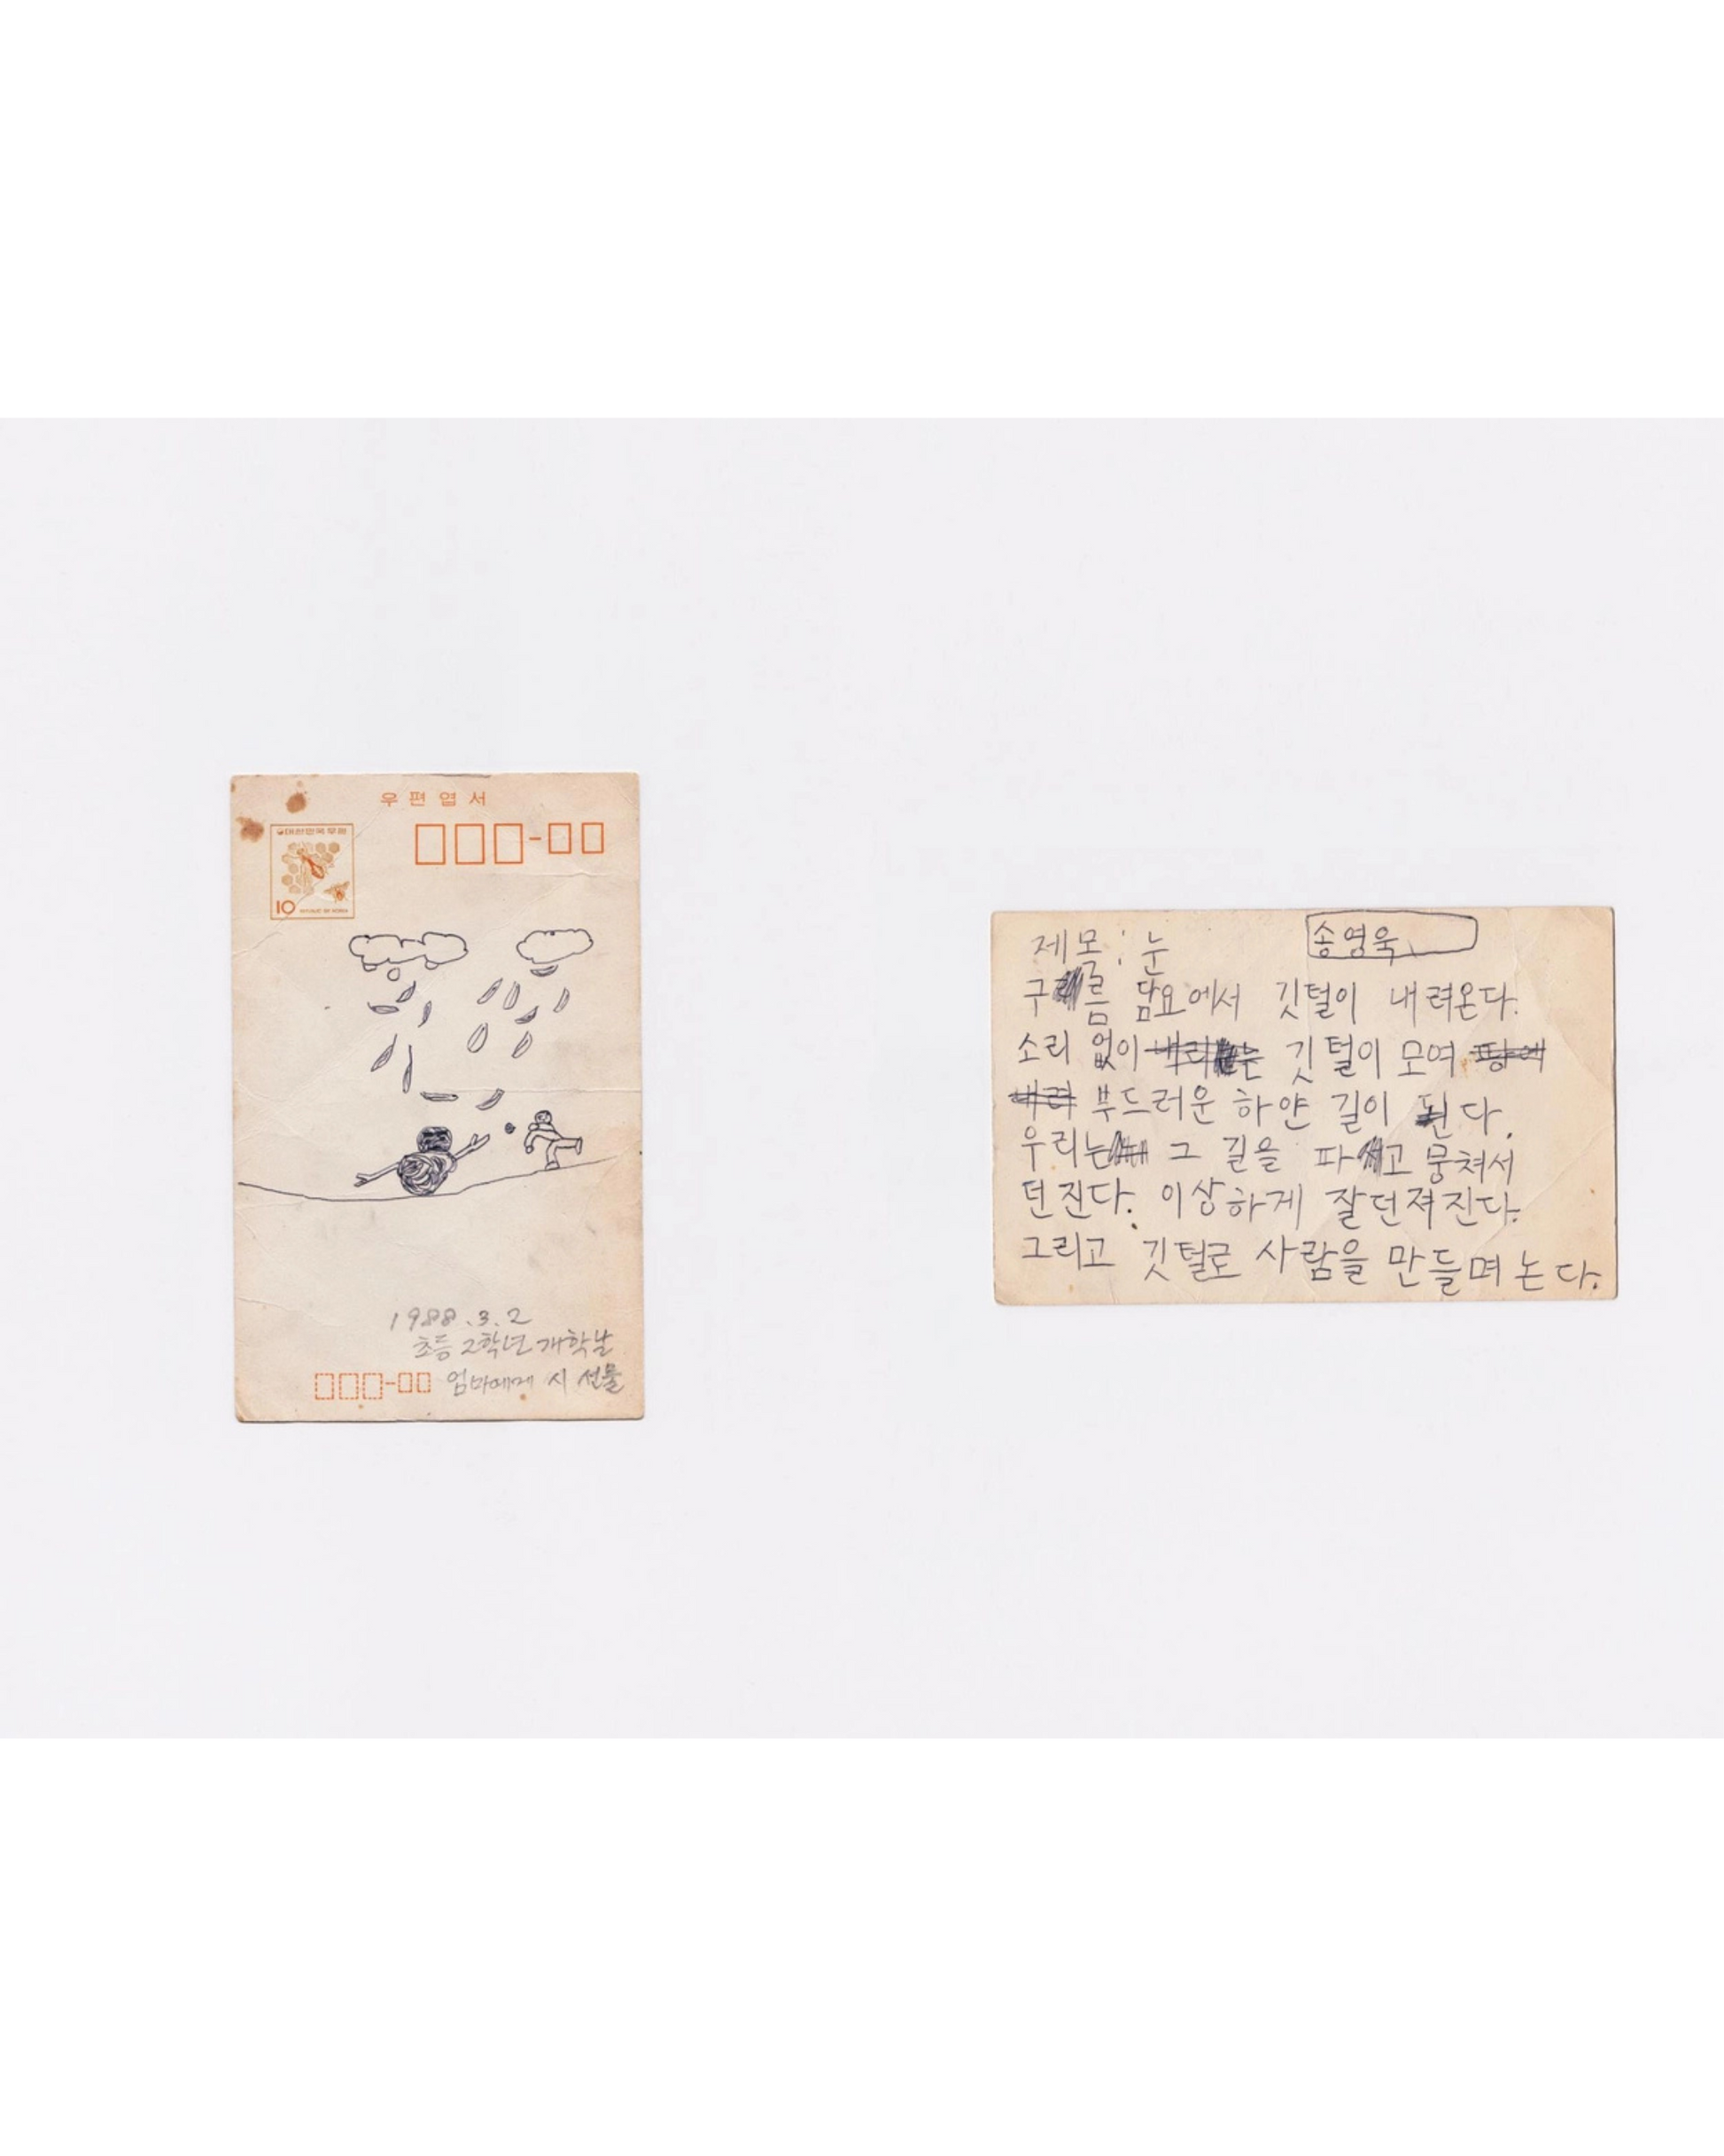 우편엽서
대한민국우표
10 REPUBLIC OF KOREA
1988.3.2
초등 2학년 개학날
엄마에게 시 선물
제목: 눈
송영욱
구름 담요에서 깃털이 내려온다.
소리 없이 깃털이 모여
부드러운 하얀 길이 된다.
우리는 그 길을 파고 뭉쳐서
던진다. 이상하게 잘던져진다.
그리고 깃털로 사람을 만들며 논다.